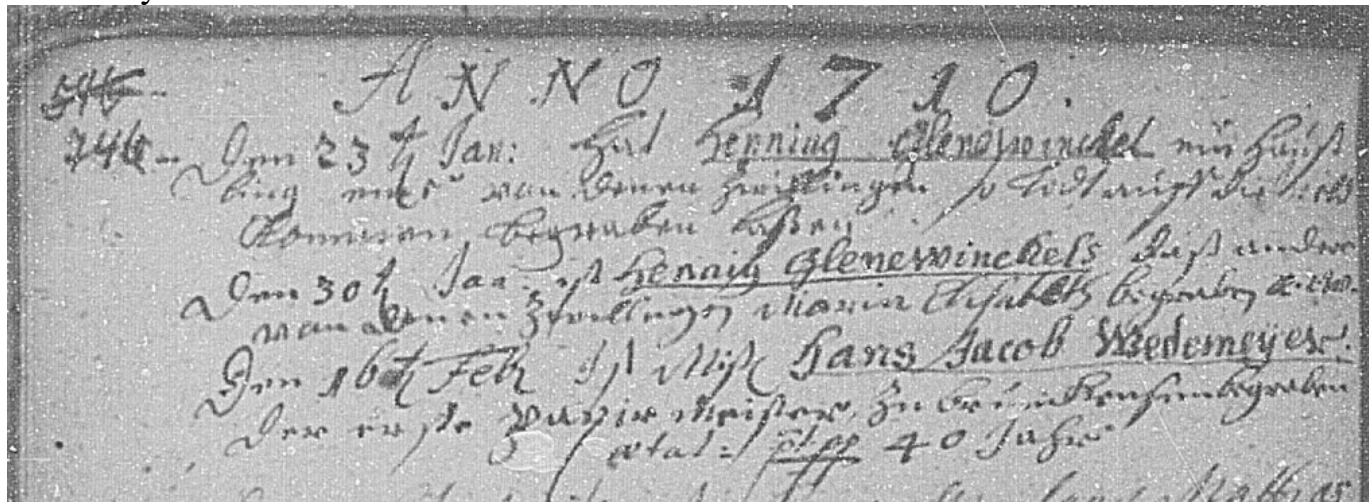 ANNO 1710.
Den 23t Jan: Hat Henning Glenewinckel ein Häuß
ling eines von denen Zwillingen so todt auff die welt
kommen, begraben laßen
Den 30t Jan. ist Hennig Glenewinckels daß ander
von denen Zwillingen Maria Elisabeth begraben
Den 16t Feb ist Mstr Hans Jacob Wedemeyer.
Der erste Papir Meister, zu Brünckensen begraben
ætat: 40 Jahr